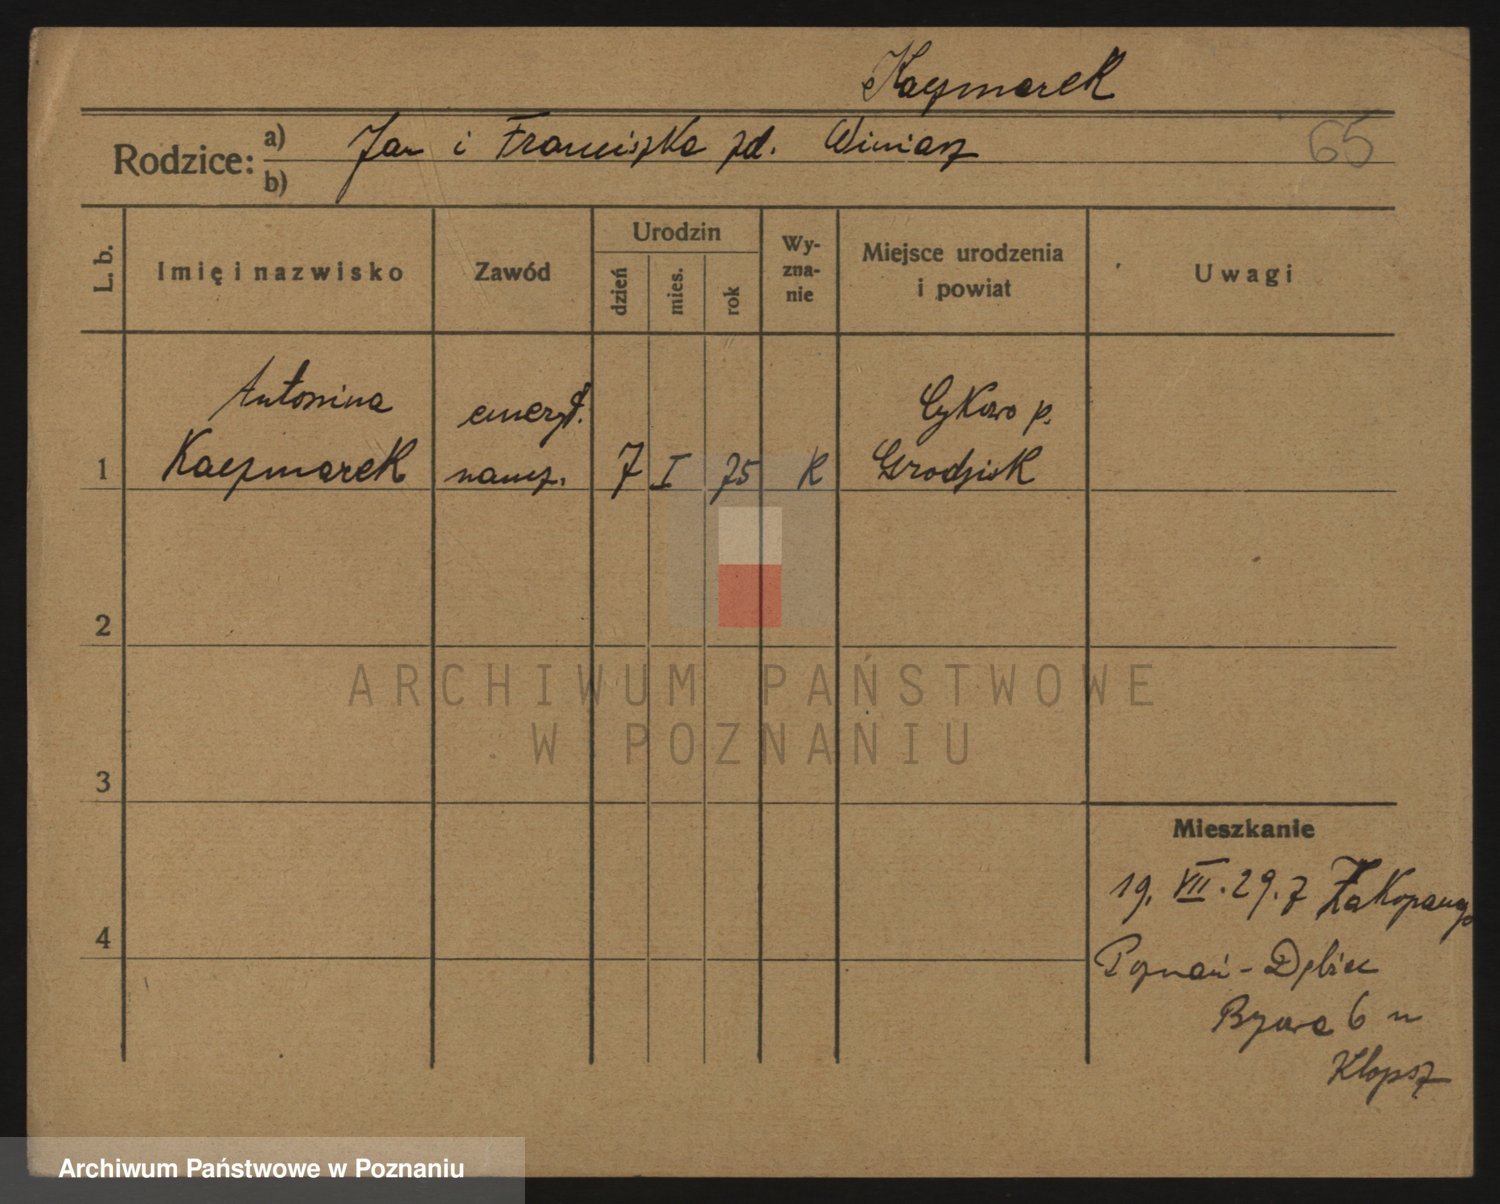 Kaczmarek
Rodzice: a) Jan i Franciszka zd. Winiarz
b)
65
L. b.
Imię i nazwisko
Zawód
Urodzin
dzień
mies.
rok
Wy-
zna-
nie
Miejsce urodzenia
i powiat
Uwagi
Antonina emeryt. Cykowo p.
1 Kaczmarek naucz. 7 I 75 K Grodzisk
2
3
4
Mieszkanie
19. VII. 29. z Zakopanego
Poznań - Dębiec
6 u
ARCHIWUM PAŃSTWOWE
W POZNANIU
Archiwum Państwowe w Poznaniu